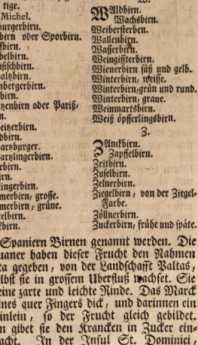 tige.
Michel.
burgerbirn.
birn oder Sporbirn.
fbirn.
belbirn.
ßischbirn.
alzbirn.
nbergerbirn.
birn.
tzenbirn oder Pariß-
rn.
eitzerbirn.
birn.
artzburger.
artzlingerbirn.
erbirn.
rn.
ingerbirn.
merbirn, grosse.
merbirn, grüne.
elbirn.
birn.
Waldbirn.
Wachsbirn.
Weibersterben.
Wallenbirn.
Wasserbirn.
Weingifterbirn.
Wienerbirn süß und gelb.
Winterbirn, weisse.
Winterbirn, grün und rund.
Winterbirn, graue.
Weinmartsbirn.
Weiß öpfferlingsbirn.
Z.
Zanckbirn.
Zapffelbirn.
Zeitbirn.
Zufelbirn.
Zelnerbirn.
Ziegelbirn, von der Ziegel-
Farbe.
Zöllnerbirn.
Zuckerbirn, frühe und späte.
Spaniern Birnen genannt werden. Die
uaner haben dieser Frucht den Nahmen
ta gegeben, von der Landschafft Paltas,
elbst sie in grossem Uberfluß wachset. Sie
eine zarte und leichte Rinde. Das Marck
nes quer Fingers dick, und darinnen ein
inlein, so der Frucht gleich gebildet.
n gibet sie den Krancken in Zucker ein-
acht. In der Insul St. Dominici,